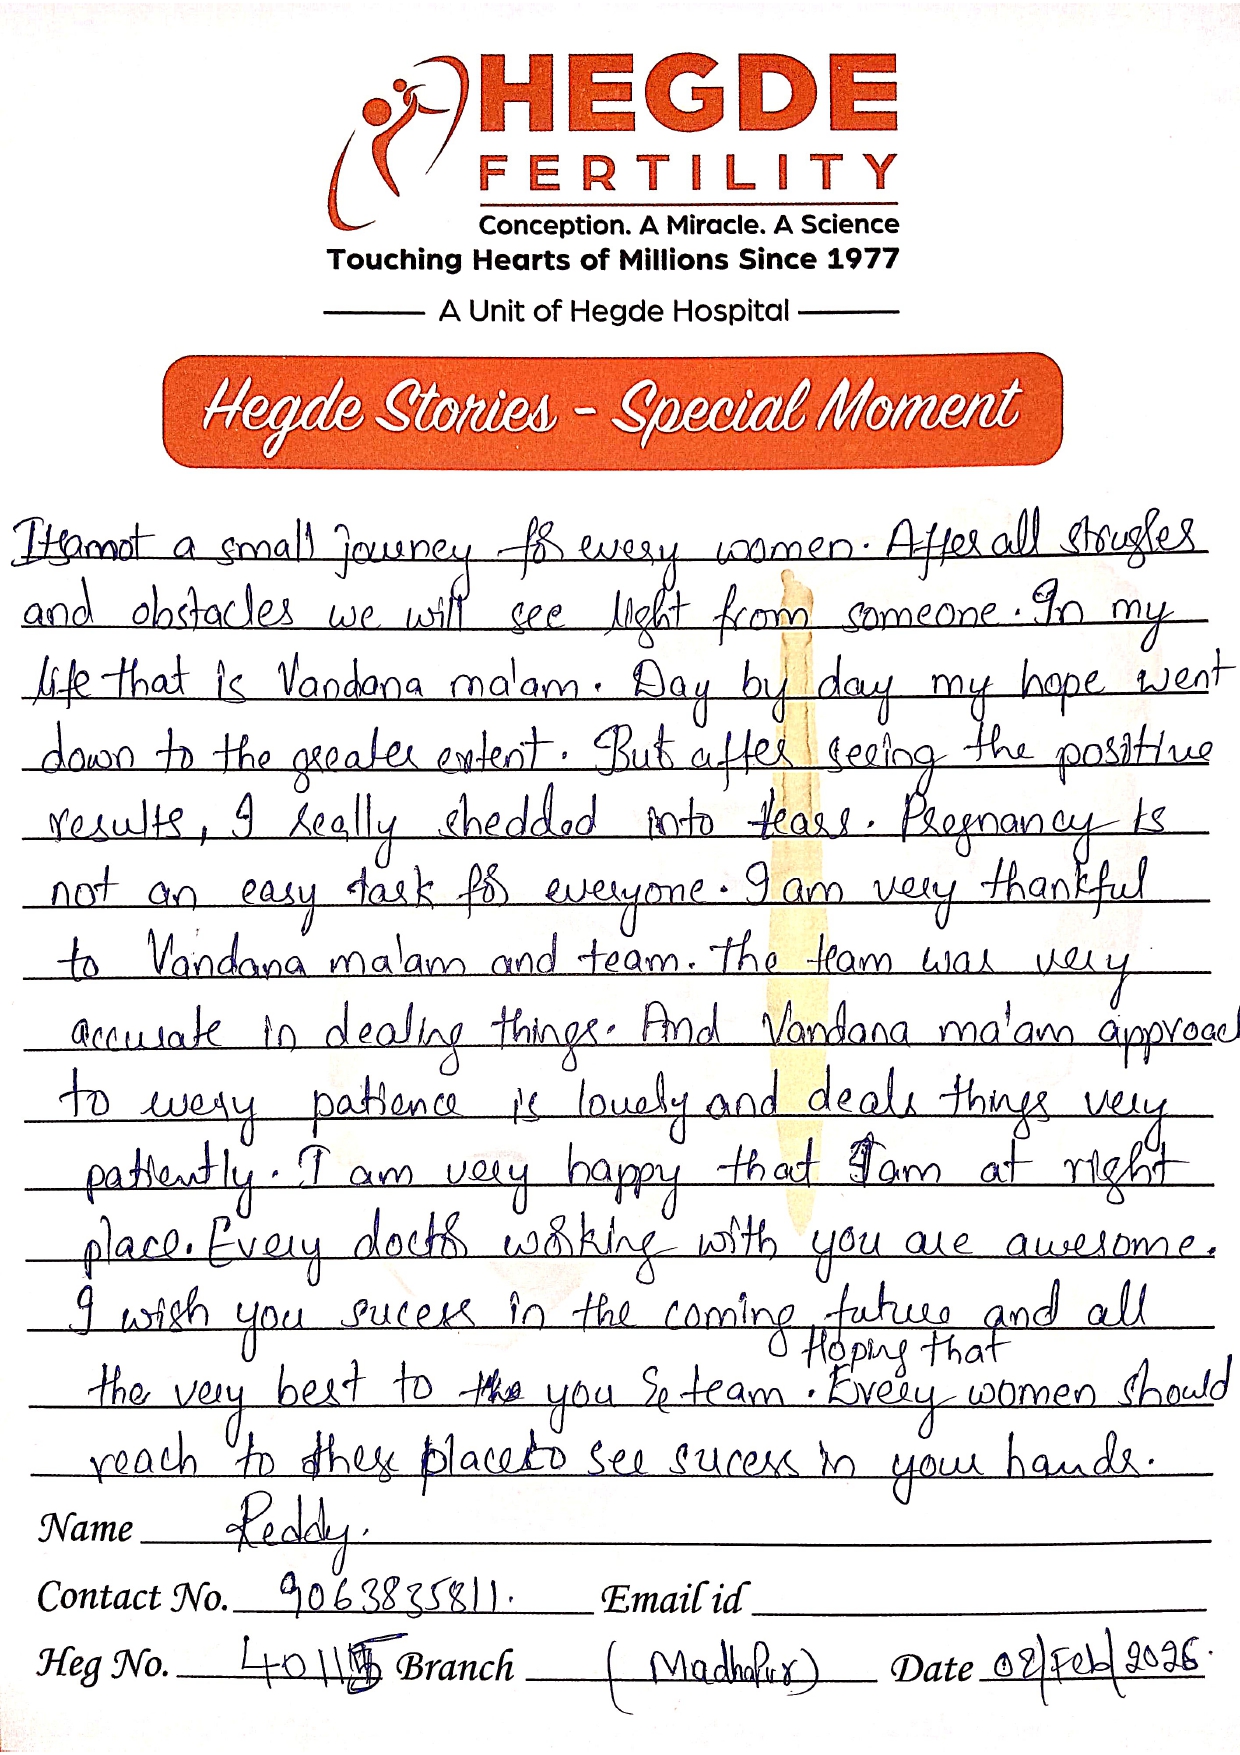 HEGDE
FERTILITY
Conception. A Miracle. A Science
Touching Hearts of Millions Since 1977
A Unit of Hegde Hospital
Hegde Stories - Special Moment
Its not a small journey for every women. After all strugles
and obstacles we will see light from someone. In my
life that is Vandana ma'am. Day by day my hope went
down to the greater extent. But after seeing the positive
results, I really shedded into tears. Pregnancy is
not an easy task for everyone. I am very thankful
to Vandana ma'am and team. The team was very
accurate in dealing things. And Vandana ma'am approach
to every patience is lovely and deals things very
patiently. I am very happy that I am at right
place. Every doctor working with you are awesome.
I wish you sucess in the coming future and all
Hoping that
the very best to you & team. Every women should
reach to these place to see sucess in your hands.
Name Reddy.
Contact No. 9063835811. Email id
Heg No. Branch (Madhapur) Date 02/Feb/2026.